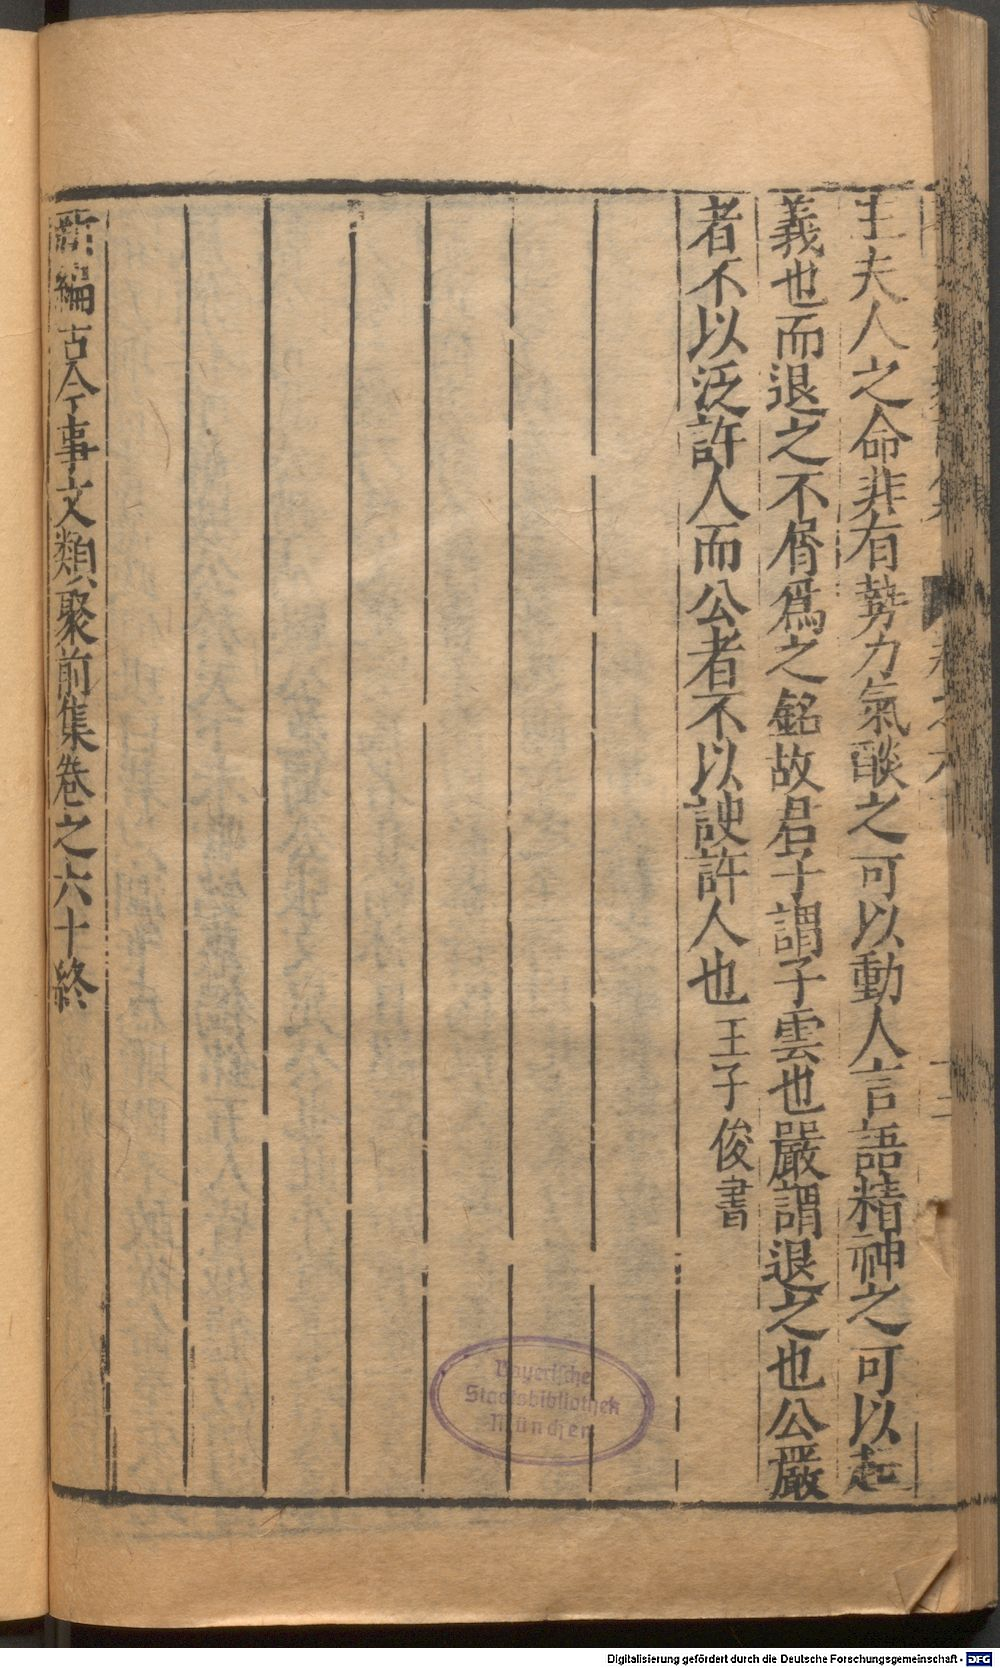 王夫人之命非有勢力氣𦦨之可以動人言語精神之可以起
義也而退之不屑爲之銘故君子謂子雲也嚴謂退之也公嚴
者不以泛許人而公者不以諛許人也 王子俊書
新編古今事文類聚前集卷之六十終
Bayerische
Staatsbibliothek
München
Digitalisierung gefördert durch die Deutsche Forschungsgemeinschaft - DFG